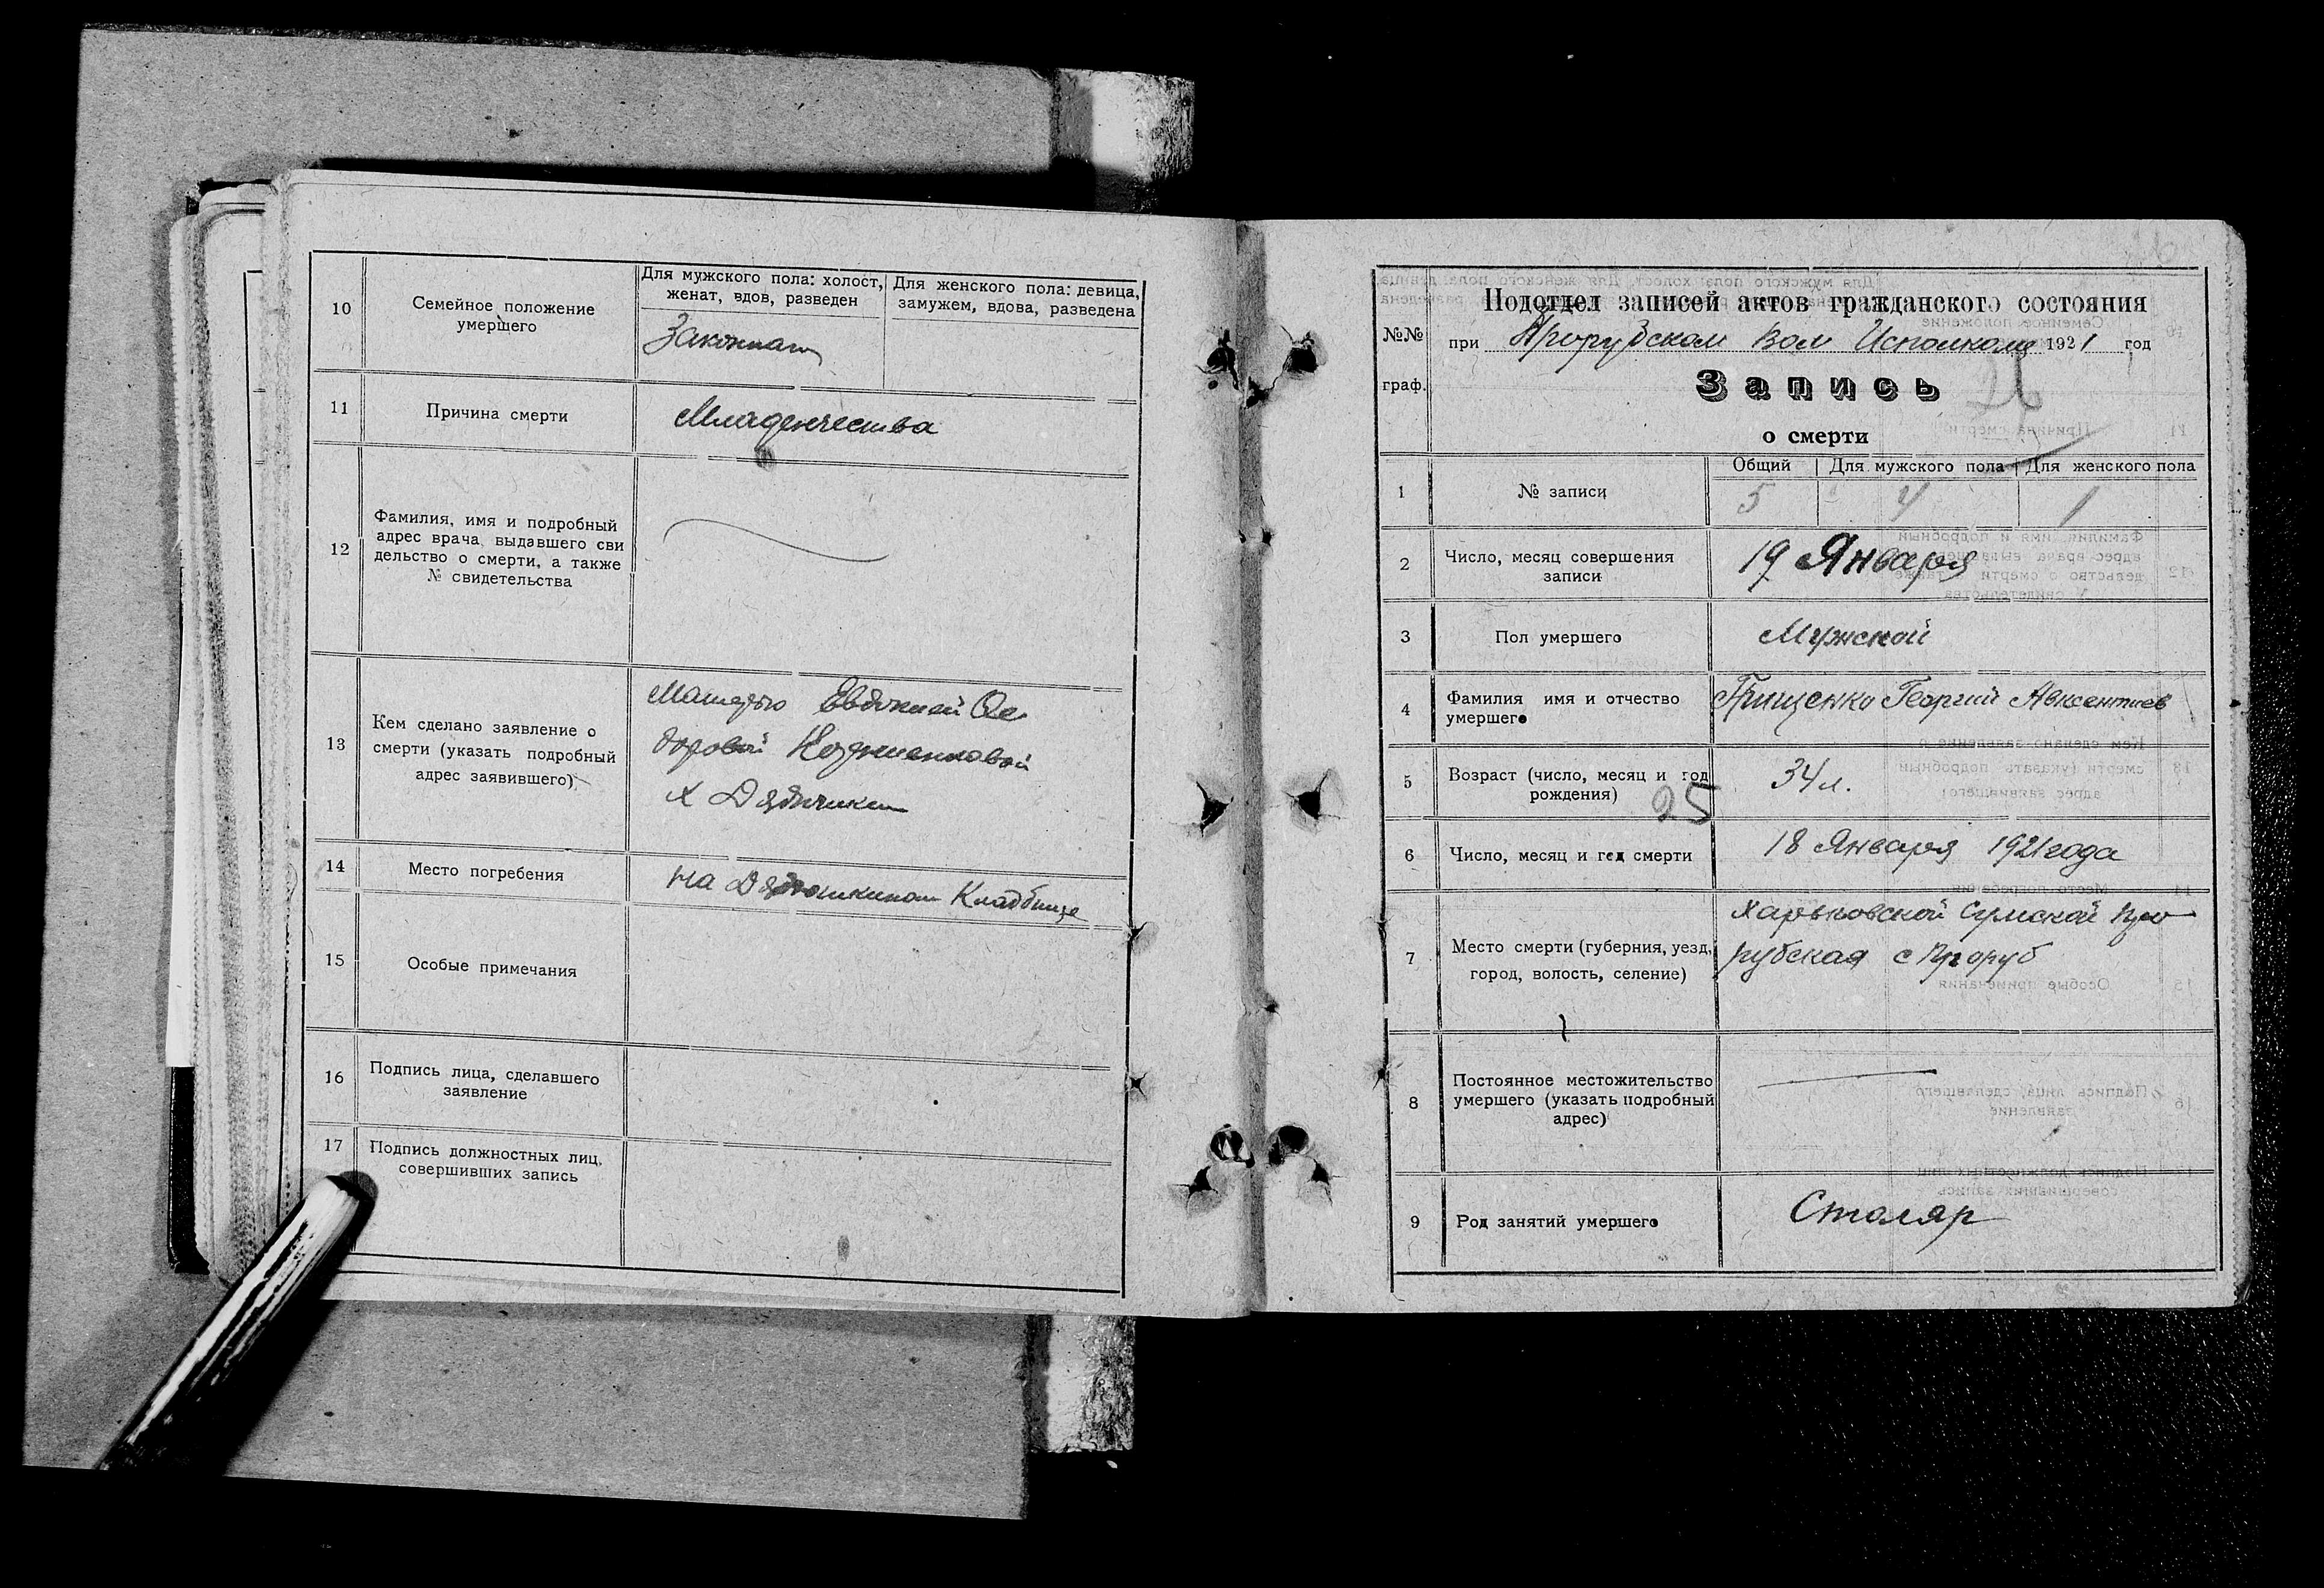 10
Семейное положение
умершего
Для мужского пола: холост,
женат, вдов, разведен
Для женского пола: девица,
замужем, вдова, разведена
11
Причина смерти
Младенчества
12
Фамилия, имя и подробный
адрес врача выдавшего сви
дельство о смерти, а также
№ свидетельства
13
Кем сделано заявление о
смерти (указать подробный
адрес заявившего)
Матерью Евдокией Фе
доровой
14
Место погребения
на Кладбище
15
Особые примечания
16
Подпись лица, сделавшего
заявление
17
Подпись должностных лиц,
совершивших запись
№№
граф.
Подотдел записей актов гражданского состояния
при Прорубском Вол Исполкоме 1921 год
26
Запись
о смерти
1
№ записи
Общий
Для мужского пола
Для женского пола
5
4
1
2
Число, месяц совершения
записи
19 Января
3
Пол умершего
Мужской
4
Фамилия имя и отчество
умершего
Грищенко Георгий Авксентиев
5
Возраст (число, месяц и год
рождения)
25
34 л.
6
Число, месяц и год смерти
18 Января 1921 года
7
Место смерти (губерния, уезд,
город, волость, селение)
Харьковской Сумской Про
рубская с Проруб
8
Постоянное местожительство
умершего (указать подробный
адрес)
9
Род занятий умершего
Столяр